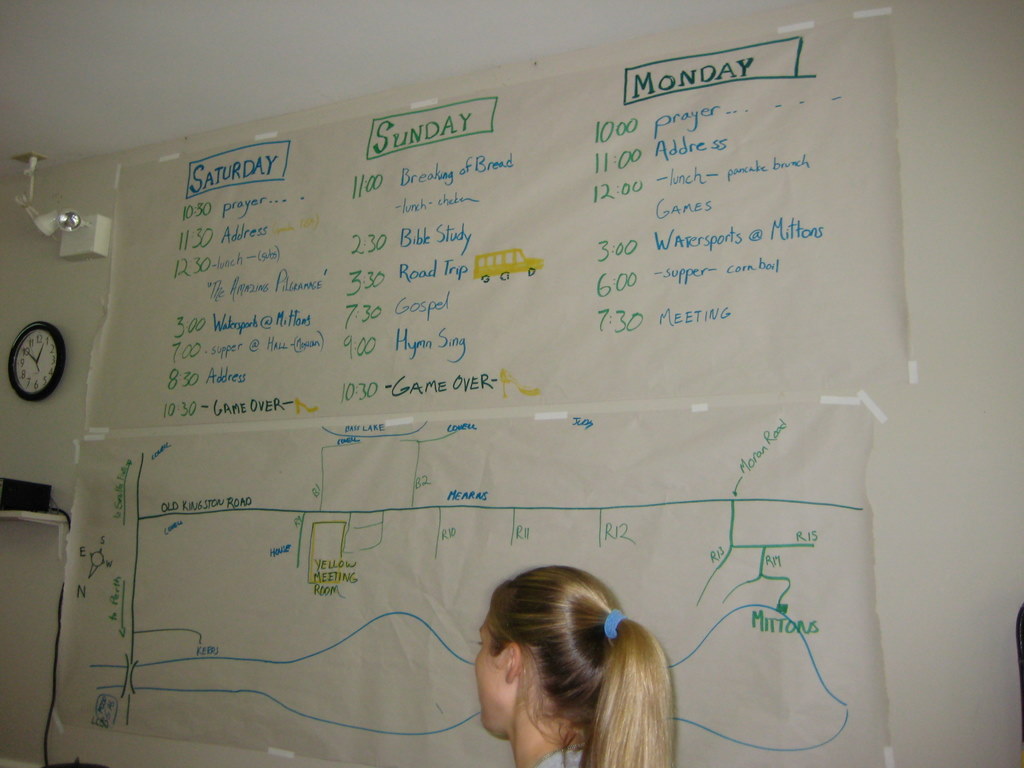 SATURDAY
10:30 prayer....
11:30 Address
12:30 -lunch- (subs)
"THE AMAZING PILGRIMAGE"
3:00 Watersports @ Mittons
7:00 - supper @ HALL - (Mexican)
8:30 Address
10:30 - GAME OVER -
SUNDAY
11:00 Breaking of Bread
-lunch- chicken
2:30 Bible Study
3:30 Road Trip
7:30 Gospel
9:00 Hymn Sing
10:30 - GAME OVER -
MONDAY
10:00 prayer... - - -
11:00 Address
12:00 -lunch- pancake brunch
GAMES
3:00 Watersports @ Mittons
6:00 -supper- corn boil
7:30 MEETING
LOWELL
OLD KINGSTON ROAD
LOWELL
LOWELL
B2
MEARNS
Moran Road
HOUSE
YELLOW
MEETING
ROOM
R10
R11
R12
R13
R14
R15
MITTONS
E S
N
to Perth
KERRS